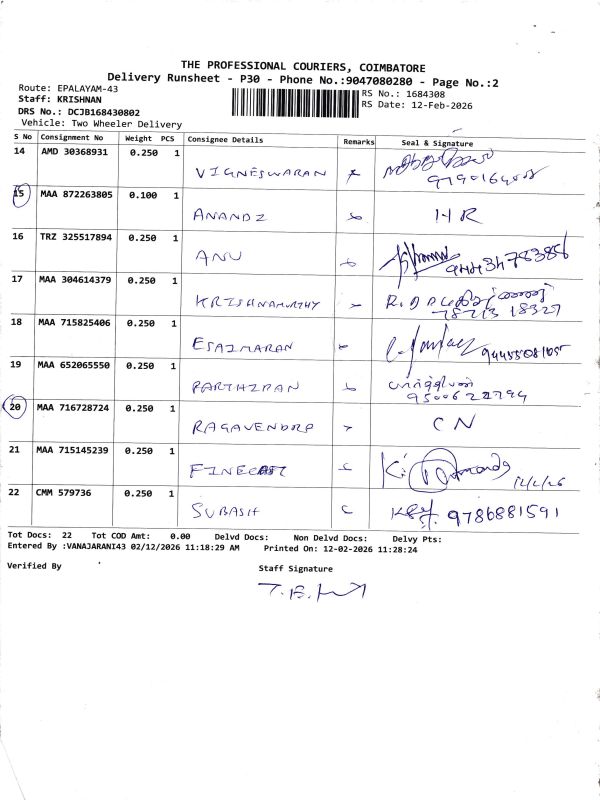 THE PROFESSIONAL COURIERS, COIMBATORE
Delivery Runsheet - P30 - Phone No.:9047080280 - Page No.:2
Route: EPALAYAM-43
Staff: KRISHNAN
DRS No.: DCJB168430802
Vehicle: Two Wheeler Delivery
RS No.: 1684308
RS Date: 12-Feb-2026
S No Consignment No Weight PCS Consignee Details Remarks Seal & Signature
14 AMD 30368931 0.250 1
VIGNESWARAN
15 MAA 872263805 0.100 1
ANANDZ HR
16 TRZ 325517894 0.250 1
ANU
17 MAA 304614379 0.250 1
KRISHNAMURTHY
78713 18327
18 MAA 715825406 0.250 1
ESAIMARAN
19 MAA 652065550 0.250 1
PARTHIPAN
9500622794
20 MAA 716728724 0.250 1
CN
21 MAA 715145239 0.250 1
22 CMM 579736 0.250 1
SUBASH C 9786881591
Tot Docs: 22 Tot COD Amt: 0.00 Delvd Docs: Non Delvd Docs: Delvy Pts:
Entered By :VANAJARANI43 02/12/2026 11:18:29 AM Printed On: 12-02-2026 11:28:24
Verified By Staff Signature